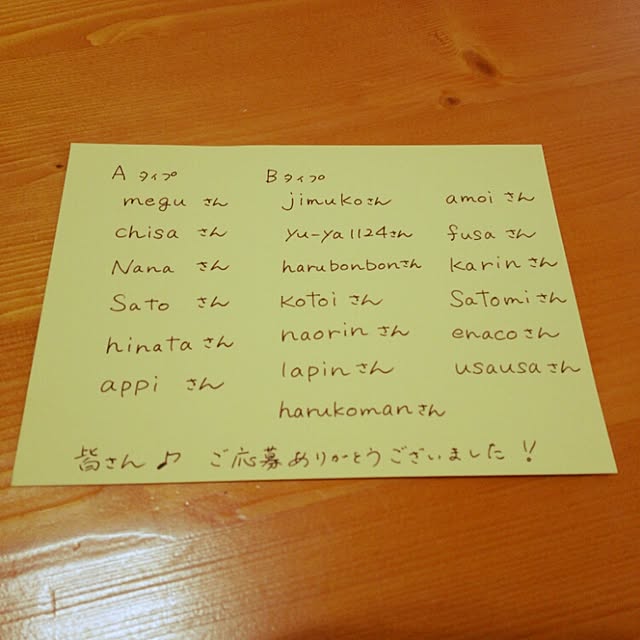 A タイプ
megu さん
chisa さん
Nana さん
Sato さん
hinata さん
appi さん
B タイプ
jimuko さん
yu-ya1124 さん
harubonbon さん
kotoi さん
naorin さん
lapin さん
harukoman さん
amoi さん
fusa さん
karin さん
Satomi さん
enaco さん
usausa さん
皆さん♪ ご応募ありがとうございました!!